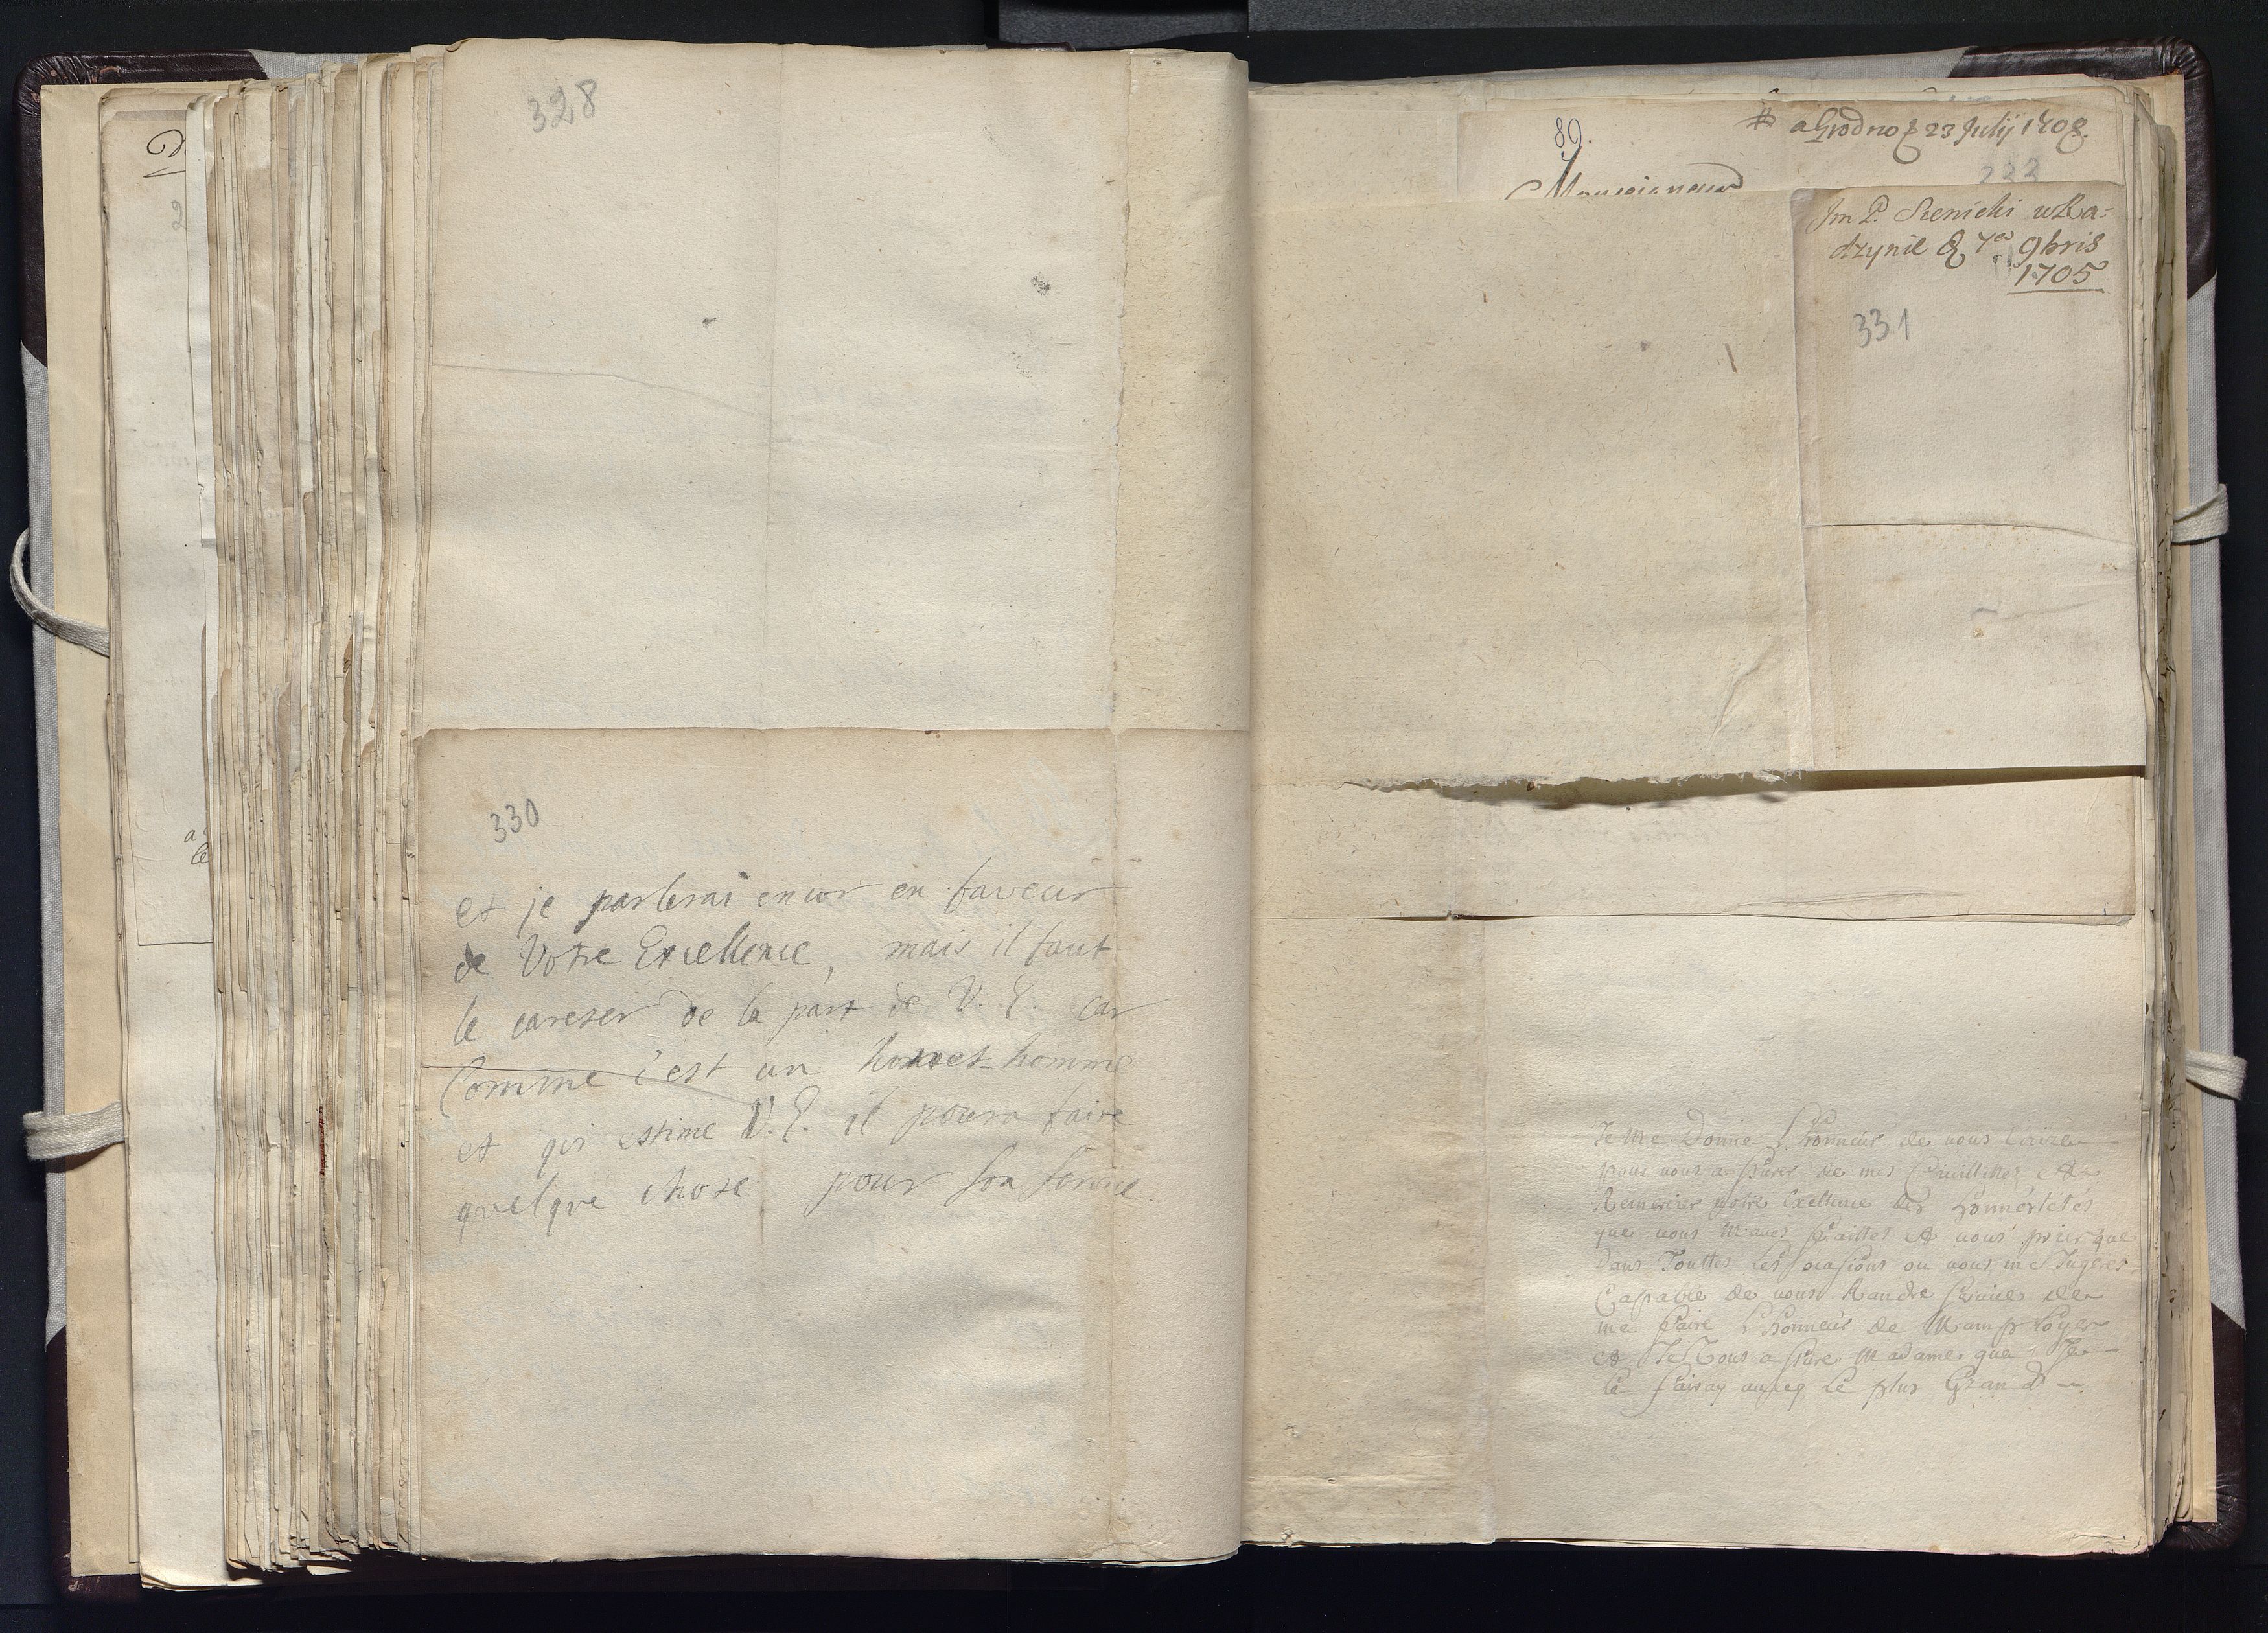 328
330
et je parlerai encor en faveur
de Votre Excellence, mais il faut
le careser de la part de V. E. car
Comme c'est un honnet-homme
et qui estime V. E. il poura faire
quelque chose pour son servise.
89.
a Grodno d 23 Julij 1708.
Monseigneur
Jm P. Sienicki w Ra-
dzynie 7 9bris
1705
331
Je me Donne L'honneur de vous Ecrire
pour vous assurer de mes Civillites et
Remercier votre Exellence des honnestetes
que vous m'aves faittes et vous prier que
dans Touttes Les ocasions ou vous me Jugeres
Capable de vous Randre service de
me faire L'honneur de Mamployer
et Je Vous assure Madame que Je
le fairay avecq Le plus Grand